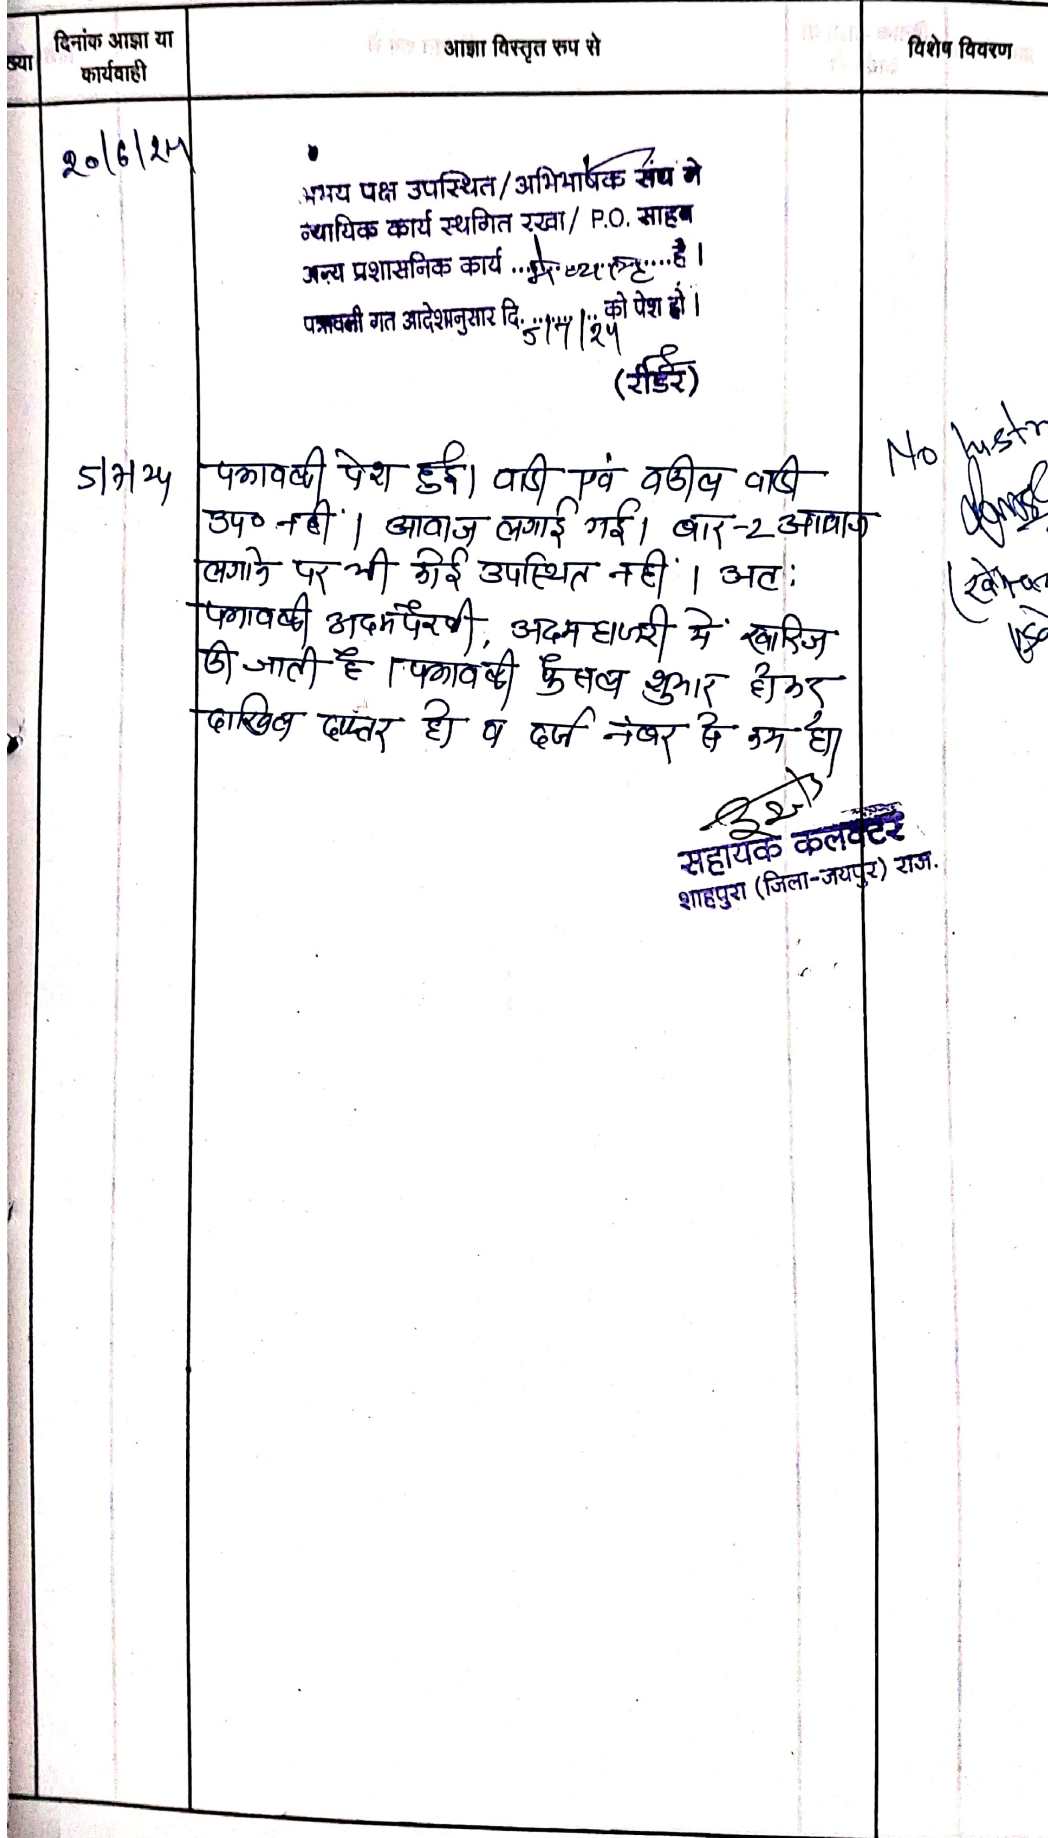 ख्या
दिनांक आज्ञा या
कार्यवाही
आज्ञा विस्तृत रूप से
विशेष विवरण
20/6/24
उभय पक्ष उपस्थित/अभिभाषक संघ ने
न्यायिक कार्य स्थगित रखा/ P.O. साहब
अन्य प्रशासनिक कार्य ...में व्यस्त....है।
पत्रावली गत आदेशानुसार दि.........को पेश हो।
5/7/24
(रीडर)
5/7/24
पत्रावली पेश हुई। वादी एवं वकील वादी
उप० नहीं। आवाज लगाई गई। बार-2 आवाज
लगाने पर भी कोई उपस्थित नहीं। अतः
पत्रावली अदमपैरवी, अदम हाजरी में खारिज
की जाती है। पत्रावली फैसल शुमार होकर
दाखिल दफ्तर हो व दर्ज नंबर से कम हो।
No
सहायक कलक्टर
शाहपुरा (जिला-जयपुर) राज.